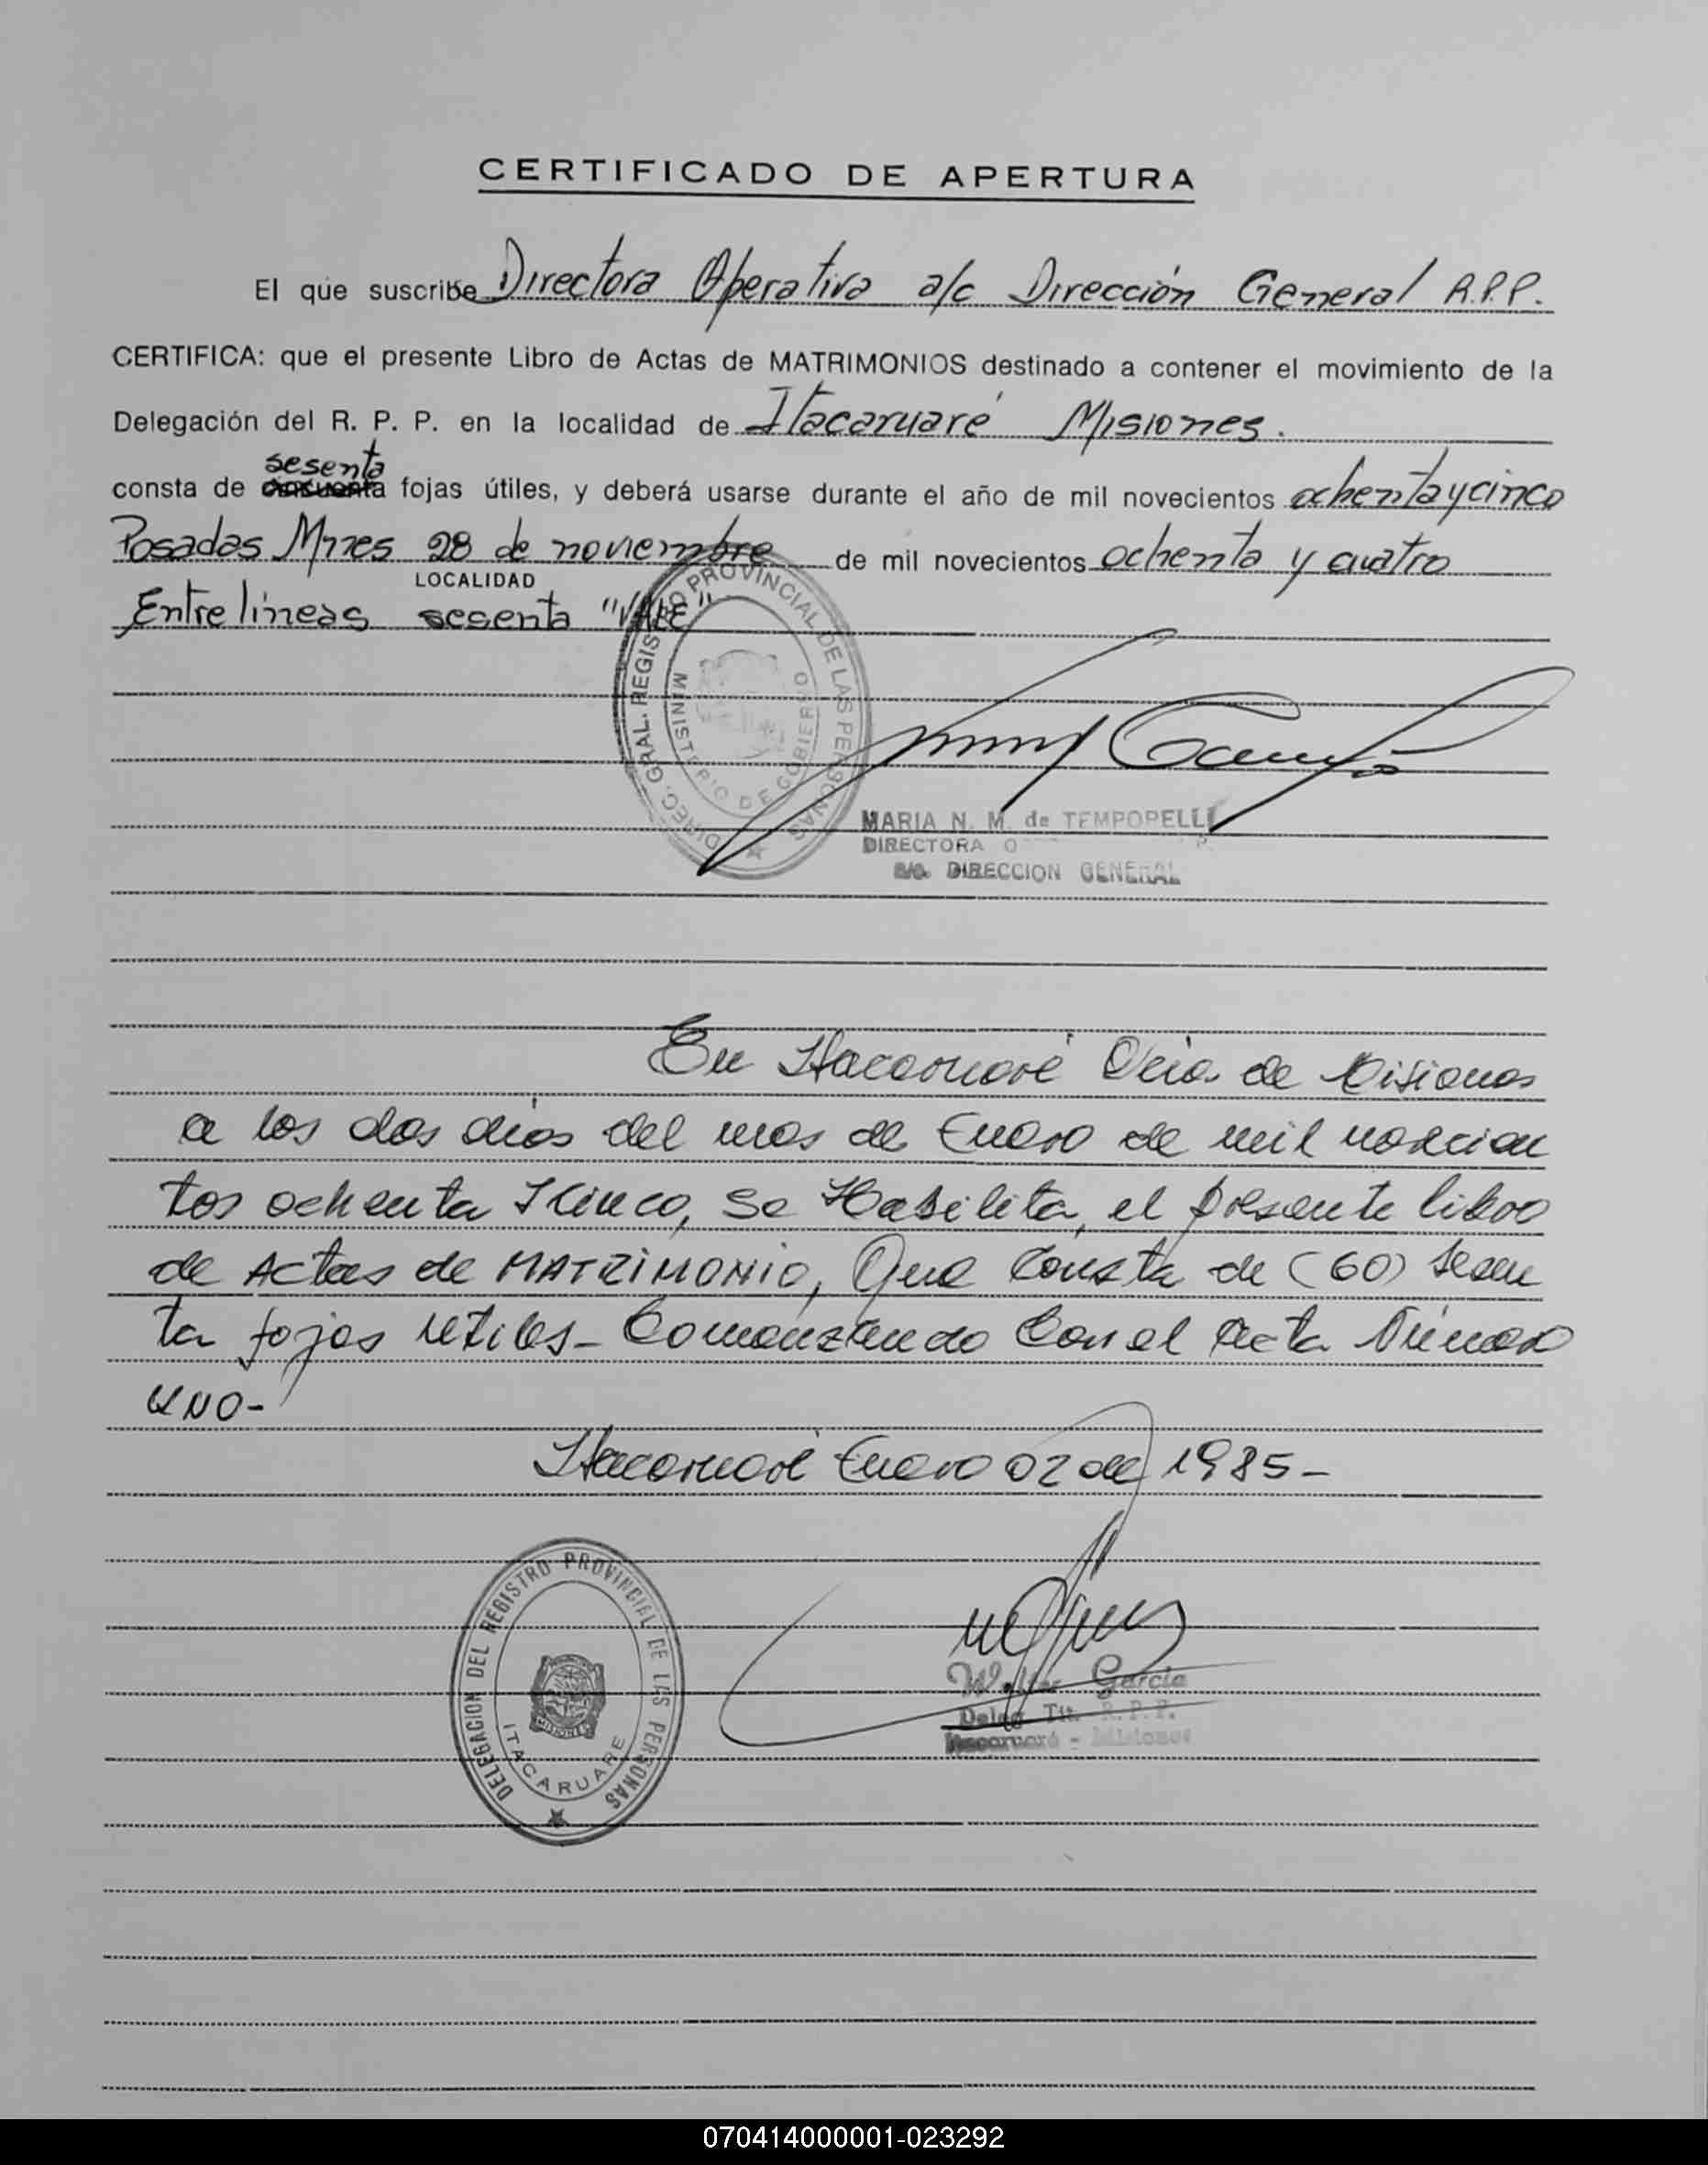 CERTIFICADO DE APERTURA
El que suscribe Directora Operativa a/c Dirección General R.P.P.
CERTIFICA: que el presente Libro de Actas de MATRIMONIOS destinado a contener el movimiento de la
Delegación del R. P. P. en la localidad de Itacaruaré Misiones.
sesenta
consta de cincuenta fojas útiles, y deberá usarse durante el año de mil novecientos ochenta y cinco
Posadas Mnes 28 de noviembre de mil novecientos ochenta y cuatro
LOCALIDAD
Entre lineas sesenta "VALE"
DIREC. GRAL. REGISTRO PROVINCIAL DE LAS PERSONAS
MINISTERIO DE GOBIERNO
MARIA N. M. de TEMPOPELLI
DIRECTORA
a/c. DIRECCION GENERAL
En Itacaruaré Pcia de Misiones
a los dos dias del mes de Enero de mil novecien
tos ochenta y cinco, se Habilita, el presente libro
de Actas de MATRIMONIO, Que Consta de (60) sesen
ta fojas utiles- Comenzando Con el Acta Número
UNO-
Itacaruaré Enero 02 de 1985-
DELEGACION DEL REGISTRO PROVINCIAL DE LAS PERSONAS
MISIONES
ITACARUARE
Walter Garcia
Deleg Tit. R.P.P.
Itacaruaré - Misiones
070414000001-023292